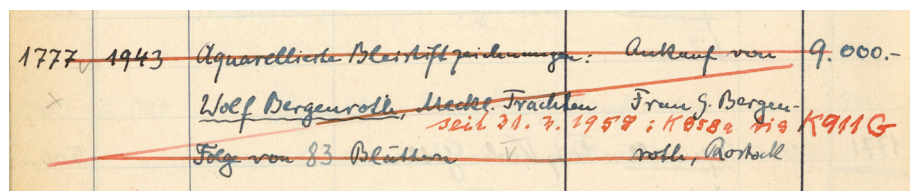 1777 1943 Aquarellierte Bleistiftzeichnungen: Ankauf von 9.000.-
Wolf Bergenroth, Meckl. Trachten Frau G. Bergen-
seit 31. 7. 1957: K858a bis K911G
Folge von 83 Blättern roth, Rostock